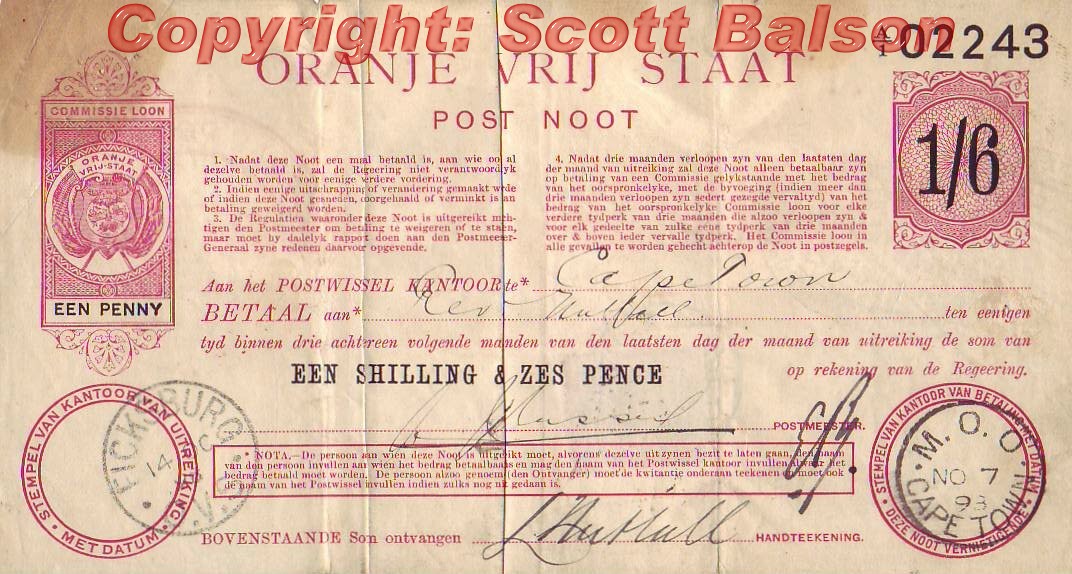 Copyright: Scott Balson
A/1 02243
ORANJE VRIJ STAAT
POST NOOT
COMMISSIE LOON
ORANJE
VRIJ-STAAT
EEN PENNY
1/6
1. Nadat deze Noot een maal betaald is, aan wie oo al
dezelve betaald is, zal de Regeering niet verantwoordyk
gehouden worden voor eenige verdere vordering.
2. Indien eenige uitschrapping of verandering gemaakt wrde
of indien deze Noot gesneden, doorgehaald of verminkt is an
betaling geweigerd worden.
3. De Regulatien waaronder deze Noot is uitgereikt mch-
tigen den Postmeester om betaling te weigeren of te staen,
maar moet hy dadelyk rapport doen aan den Postmeeer-
Generaal zyne redenen daarvoor opgevende.
4. Nadat drie maanden verloopen zyn van den laatsten dag
der maand van uitreiking zal deze Noot alleen betaalbaar zyn
op betaling van een Commissie gelykstaande met het bedrag
van het oorspronkelyke, met de byvoeging (indien meer dan
drie maanden verloopen zyn sedert gezegde vervaltyd) van het
bedrag van het oorspronkelyke Commissie loon voor elke
verdere tydperk van drie maanden die alzoo verloopen zyn &
voor elk gedeelte van zulke eene tydperk van drie maanden
over & boven ieder vervalle tydperk. Het Commissie loon in
alle gevallen te worden gehecht achterop de Noot in postzegels.
Aan het POSTWISSEL KANTOOR te* Cape Town
BETAAL aan* Rev Nuttall ten eenigen
tyd binnen drie achtereen volgende manden van den laatsten dag der maand van uitreiking de som van
EEN SHILLING & ZES PENCE op rekening van de Regeering.
POSTMEESTER.
* NOTA.—De persoon aan wien deze Noot is uitgereikt moet, alvorens dezelve uit zynen bezit te laten gaan, den naam
van den persoon invullen aan wien het bedrag betaalbaar is en mag den naam van het Postwissel kantoor invullen alwaar het
bedrag betaald moet worden. De persoon alzoo genoemd (den Ontvanger) moet de kwitantie onderaan teekenen en moet ook
de naam van het Postwissel invullen indien zulks nog niet gedaan is.
BOVENSTAANDE Som ontvangen L Nuttall HANDTEEKENING.
STEMPEL VAN KANTOOR VAN UITREIKING
MET DATUM
FICKSBURG
14
STEMPEL VAN KANTOOR VAN BETALING MET DATUM
DEZE NOOT VERNIETIGENDE
M.O.O.
NO 7
98
CAPE TOWN